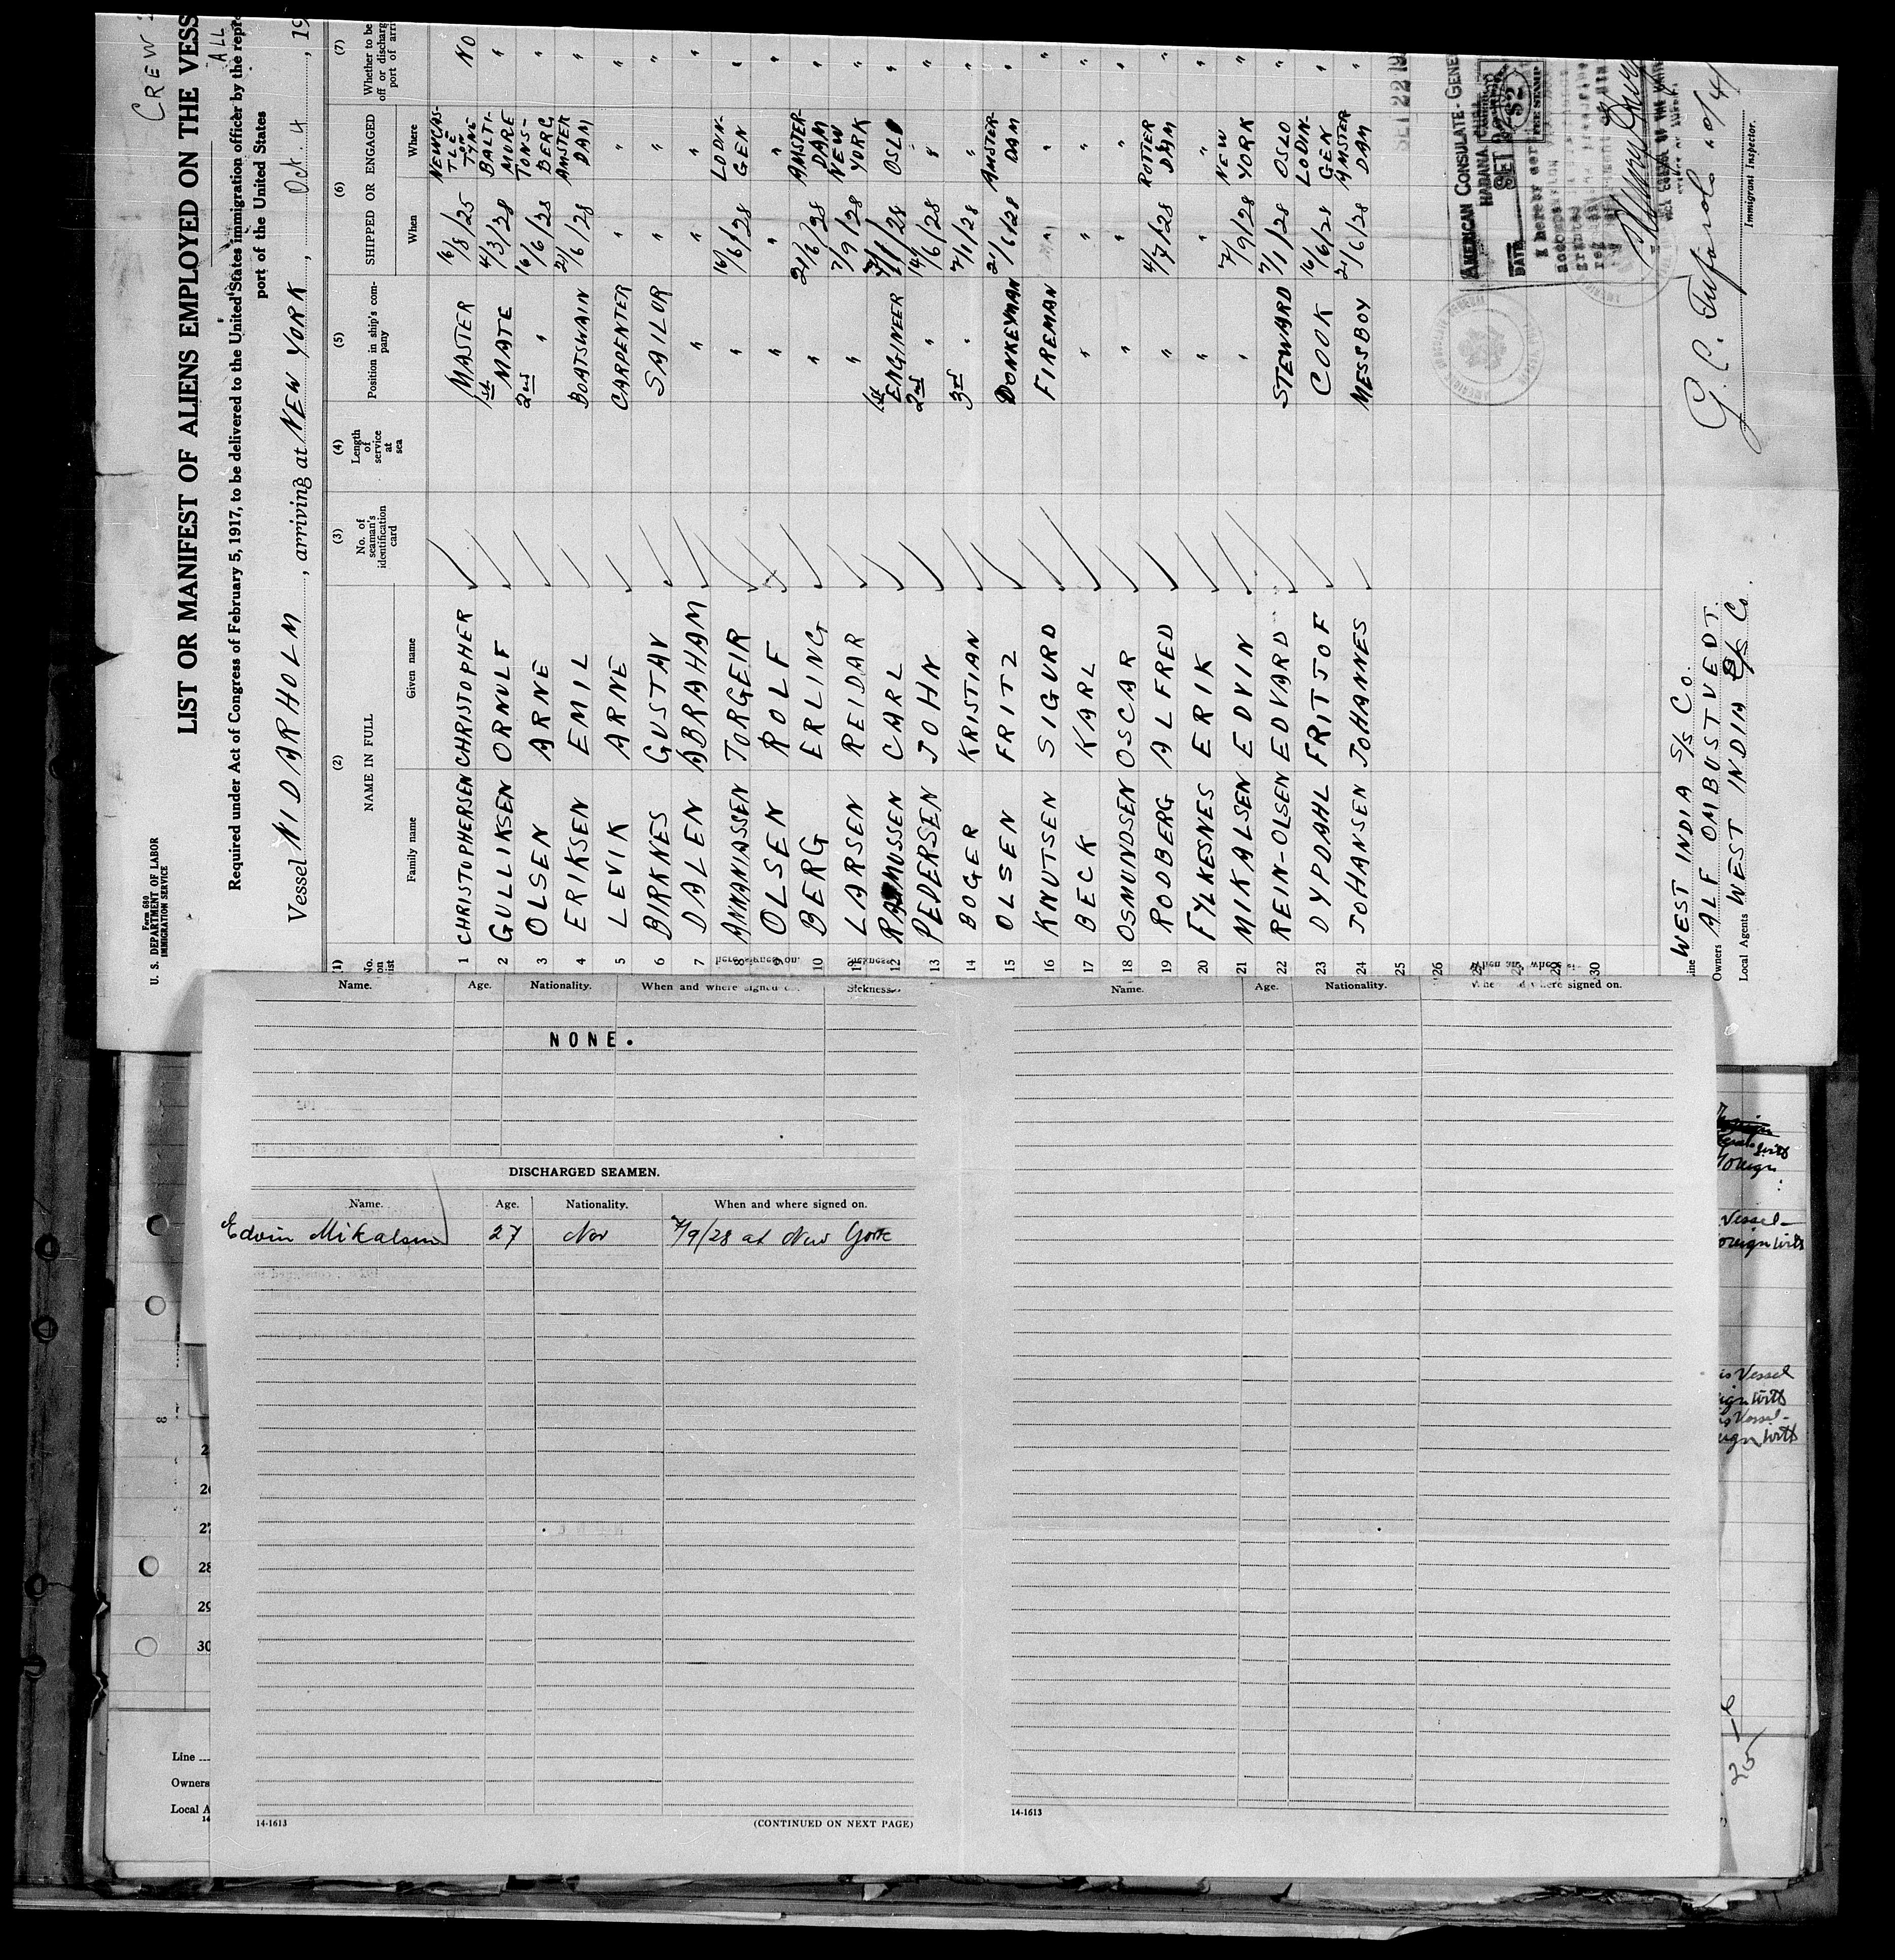 CREW
Form 680
U. S. DEPARTMENT OF LABOR
IMMIGRATION SERVICE
LIST OR MANIFEST OF ALIENS EMPLOYED ON THE VESS
ALL
Required under Act of Congress of February 5, 1917, to be delivered to the United States immigration officer by the repre
port of the United States
Vessel NIDARHOLM, arriving at NEW YORK, Oct. 4, 19
(1) (2) (3) (4) (5) (6) (7)
No. on list NAME IN FULL No. of seaman's identification card Length of service at sea Position in ship's company SHIPPED OR ENGAGED Whether to be off or discharg port of arri
Family name Given name When Where
1 CHRISTOPHERSEN CHRISTOPHER MASTER 16/8/25 NEWCASTLE TON TYNE NO
2 GULLIKSEN ORNULF 1st MATE 4/3/28 BALTIMORE "
3 OLSEN ARNE 2nd " 16/6/28 TONSBERG "
4 ERIKSEN EMIL BOATSWAIN 21/6/28 AMSTERDAM "
5 LEVIK ARNE CARPENTER " " "
6 BIRKNES GUSTAV SAILOR " " "
7 DALEN ABRAHAM " " " "
8 ANNANIASSEN TORGEIR " 16/6/28 LODINGEN "
9 OLSEN ROLF " " " "
10 BERG ERLING " 21/6/28 AMSTERDAM "
11 LARSEN REIDAR " 7/9/28 NEW YORK "
12 RASMUSSEN CARL 1st ENGINEER 7/1/28 OSLO "
13 PEDERSEN JOHN 2nd " 14/6/28 " "
14 BOGER KRISTIAN 3rd " 7/1/28 " "
15 OLSEN FRITZ DONKEYMAN 21/6/28 AMSTERDAM "
16 KNUTSEN SIGURD FIREMAN " " "
17 BECK KARL " " " "
18 OSMUNDSEN OSCAR " " " "
19 RODBERG ALFRED " 4/7/28 ROTTERDAM "
20 FYLKESNES ERIK " " " "
21 MIKALSEN EDVIN " 7/9/28 NEW YORK "
22 REIN-OLSEN EDVARD STEWARD 7/1/28 OSLO "
23 DYPDAHL FRITJOF COOK 16/6/28 LODINGEN "
24 JOHANSEN JOHANNES MESSBOY 21/6/28 AMSTERDAM "
25
26
30
AMERICAN CONSULATE-GENE
HABANA, CUBA
DATE
$2
FEE STAMP
I hereby cer
Line WEST INDIA S/S Co.
Owners ALF OMBUSTVEDT.
Local Agents WEST INDIA S/S Co.
Immigrant Inspector.
Name. Age. Nationality. When and where signed on. Sickness.
NONE.
DISCHARGED SEAMEN.
Name. Age. Nationality. When and where signed on.
Edvin Mikalsen 27 Nor 7/9/28 at New York
14-1613 (CONTINUED ON NEXT PAGE)
Name. Age. Nationality. When and where signed on.
14-1613
8
28
29
30
Line
Owners
Local A
14
foreign
Vessel
is Vessel